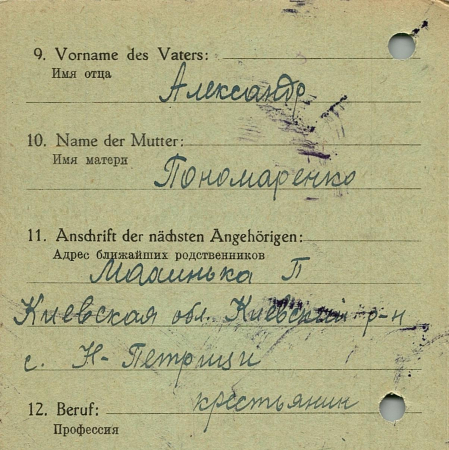 9. Vorname des Vaters:
Имя отца
Александр
10. Name der Mutter:
Имя матери
Пономаренко
11. Anschrift der nächsten Angehörigen:
Адрес ближайших родственников
Малинька П
Киевская обл. Киевский р-н
с. Н-Петрици
крестьянин
12. Beruf:
Профессия